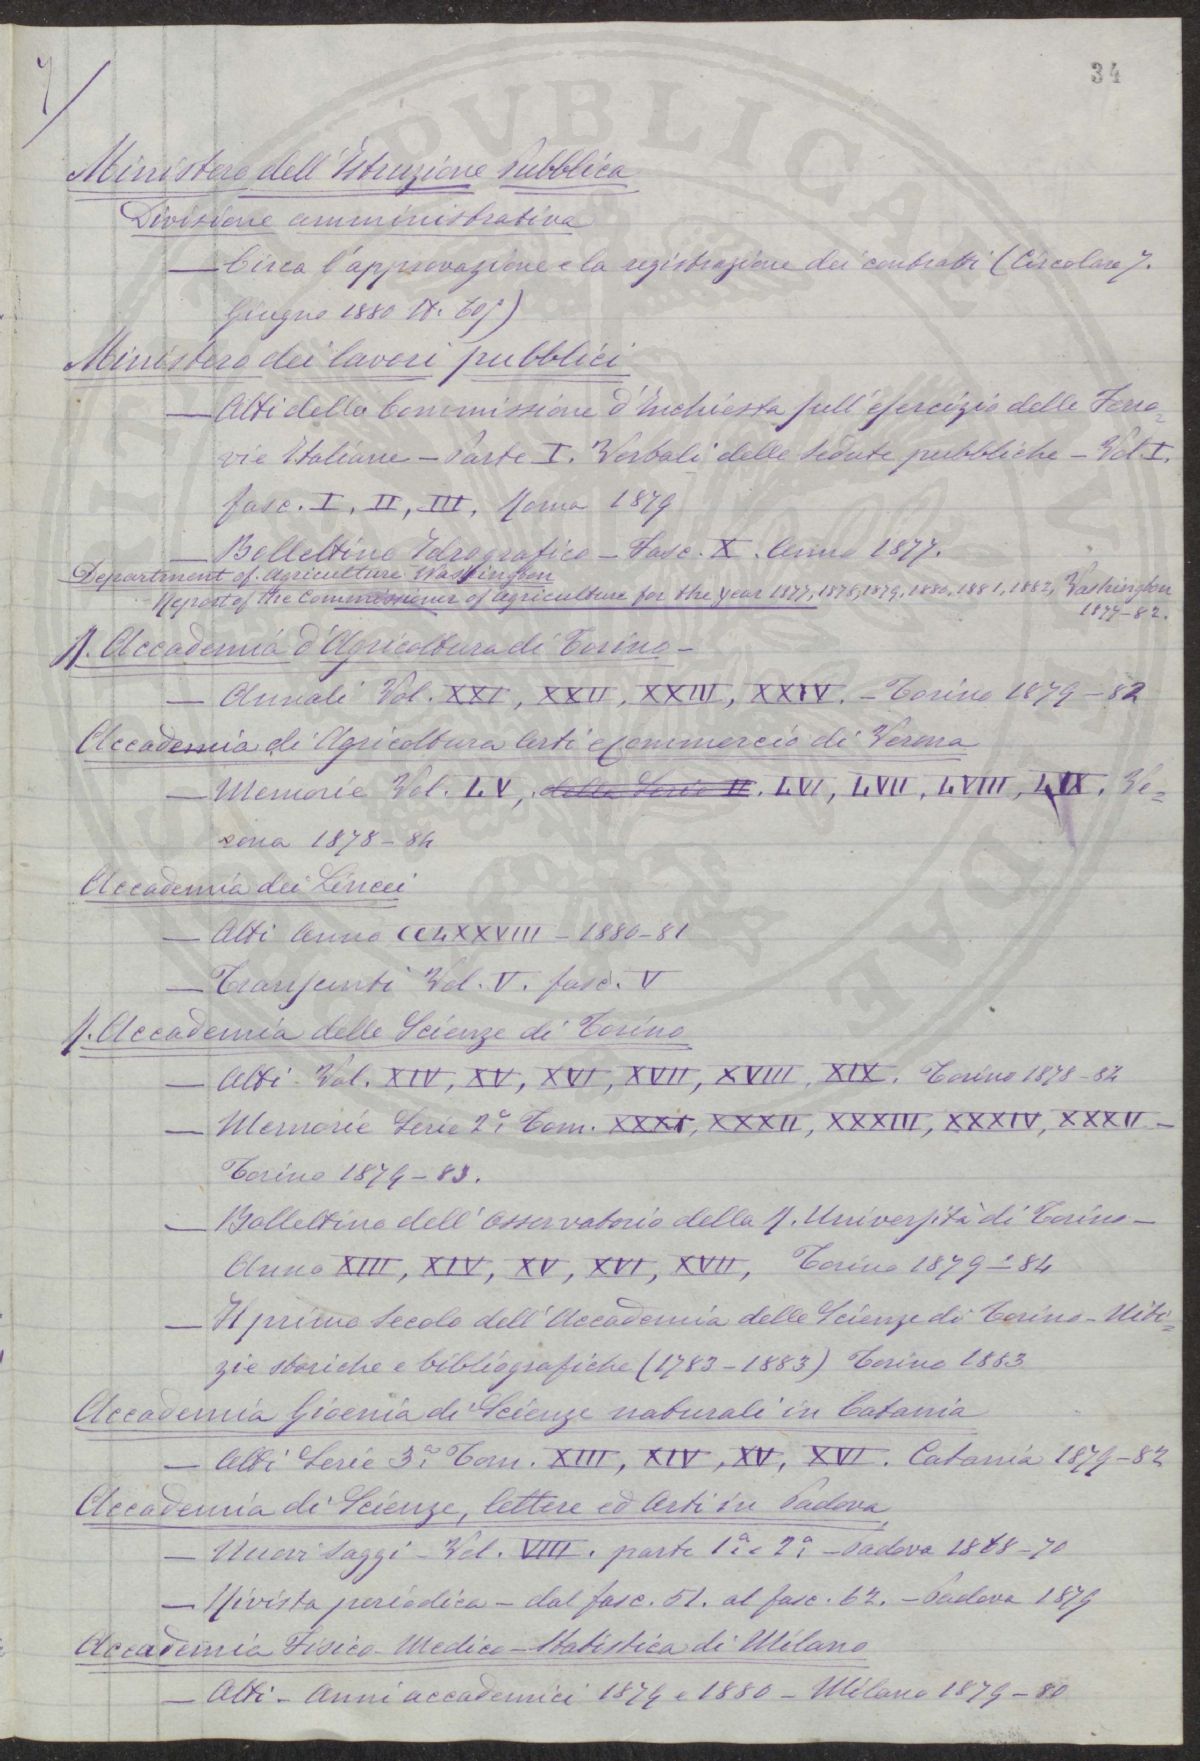 34
7
Ministero dell'Istruzione Pubblica
Divisione amministrativa
— Circa l'approvazione e la registrazione dei contratti (Circolare 7.
Giugno 1880 N.
Ministero dei lavori pubblici
— Atti della Commissione d'Inchiesta sull'esercizio delle Ferro=
vie Italiane — Parte I. Verbali delle Sedute pubbliche — Vol. I.
fasc. I, II, III, Roma 1879
— Bollettino Idrografico — Fasc. X. Anno 1877.
Department of agriculture Washington
Report of the Commissioner of agriculture for the year 1877, 1878, 1879, 1880, 1881, 1882, Washington
1877-82.
R. Accademia d'Agricoltura di Torino —
— Annali Vol. XXI, XXII, XXIII, XXIV. — Torino 1879-82
Accademia di Agricoltura Arti e Commercio di Verona
— Memorie Vol. LV, della Serie II. LVI, LVII, LVIII, LIX. Ve=
rona 1878-84
Accademia dei Lincei
— Atti Anno CCLXXVIII — 1880-81
— Transunti Vol. V. fasc. V
R. Accademia delle Scienze di Torino
— Atti Vol. XIV, XV, XVI, XVII, XVIII, XIX. Torino 1878-84
— Memorie Serie 2ª Tom. XXXI, XXXII, XXXIII, XXXIV, XXXV —
Torino 1879-83.
— Bollettino dell'Osservatorio della R. Università di Torino —
Anno XIII, XIV, XV, XVI, XVII, Torino 1879-84
— Il primo Secolo dell'Accademia delle Scienze di Torino — Noti=
zie storiche e bibliografiche (1783-1883) Torino 1883
Accademia Gioenia di Scienze naturali in Catania
— Atti Serie 3ª Tom. XIII, XIV, XV, XVI. Catania 1879-82
Accademia di Scienze, lettere ed Arti in Padova
— Nuovi Saggi — Vol. VIII. parte 1ª e 2ª — Padova 1868-70
— Rivista periodica — dal fasc. 51. al fasc. 62. — Padova 1879
Accademia Fisico-Medico-Statistica di Milano
— Atti — Anni accademici 1879 e 1880 — Milano 1879-80